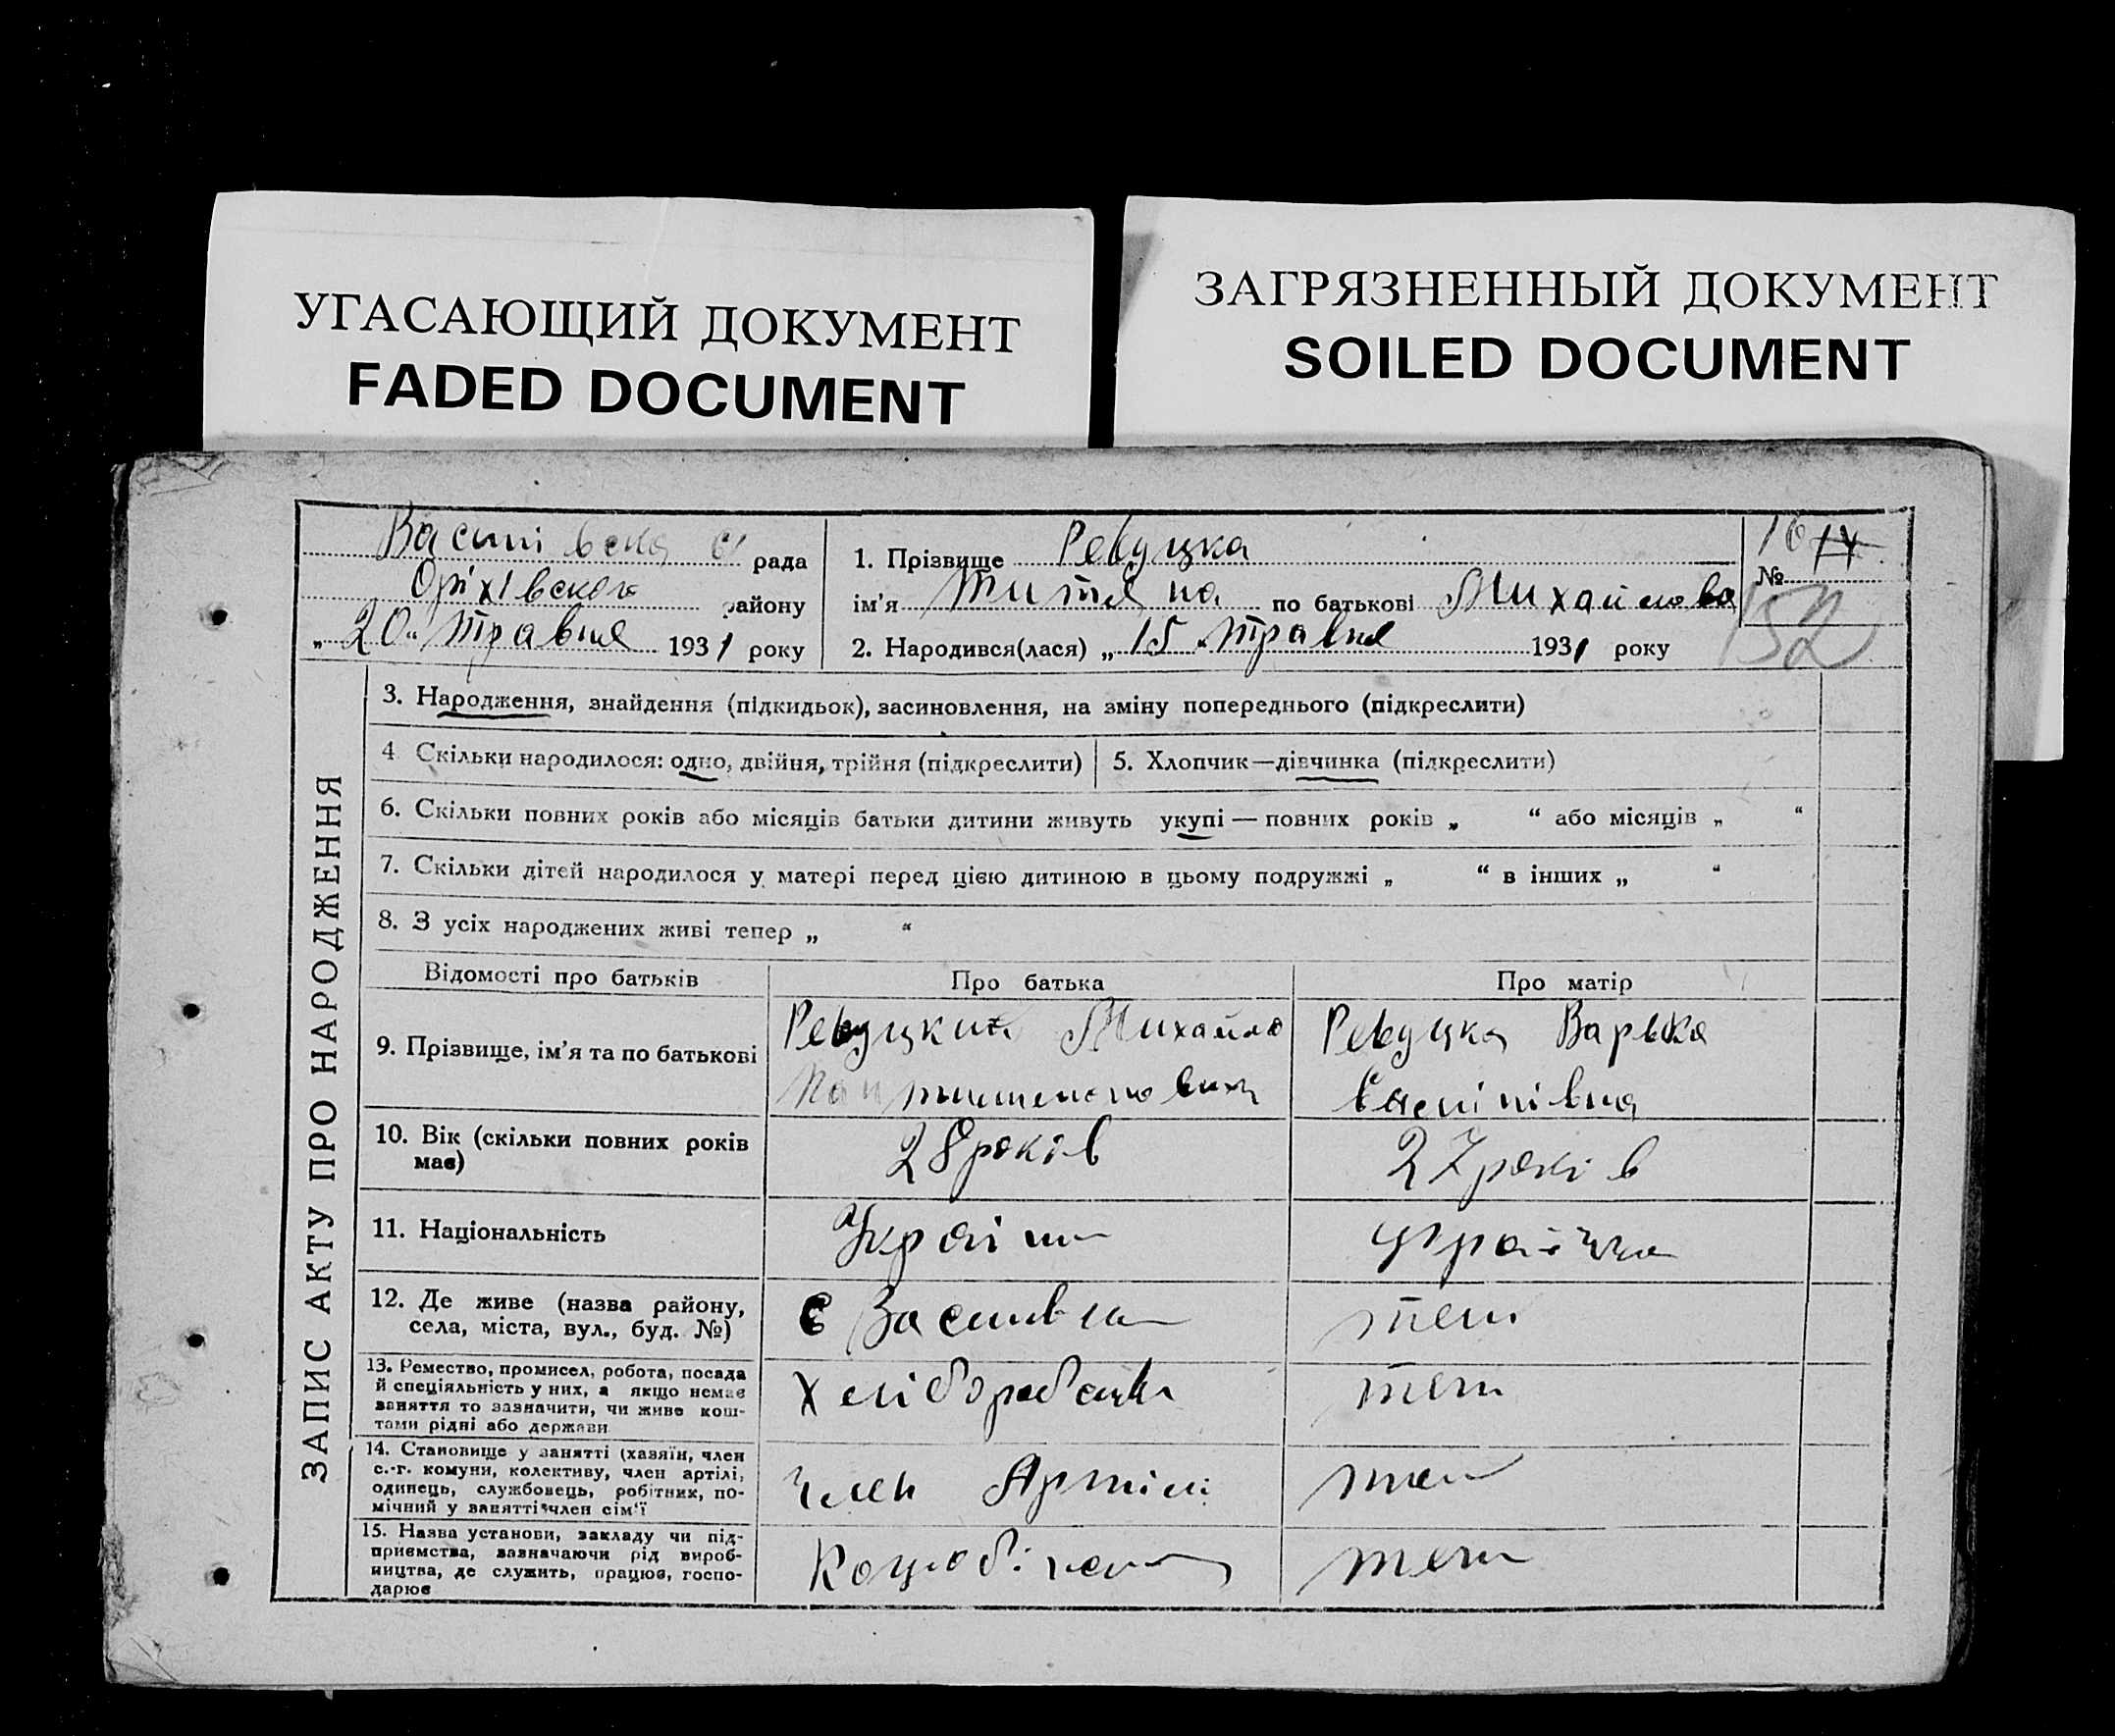 УГАСАЮЩИЙ ДОКУМЕНТ
FADED DOCUMENT
ЗАГРЯЗНЕННЫЙ ДОКУМЕНТ
SOILED DOCUMENT
рада
Оріхівського району
„20“ травня 1931 року
1. Прізвище Ревуцка
ім'я по батькові Михайлова
2. Народився(лася) „15“ травня 1931 року
16 14
№
152
ЗАПИС АКТУ ПРО НАРОДЖЕННЯ
3. Народження, знайдення (підкидьок), засиновлення, на зміну попереднього (підкреслити)
4 Скільки народилося: одно, двійня, трійня (підкреслити)
5. Хлопчик—дівчинка (підкреслити)
6. Скільки повних років або місяців батьки дитини живуть укупі — повних років „ “ або місяців „ “
7. Скільки дітей народилося у матері перед цією дитиною в цьому подружжі „ “ в інших „ “
8. З усіх народжених живі тепер „ “
Відомості про батьків
Про батька
Про матір
9. Прізвище, ім'я та по батькові
Ревуцкий Михайло
Ревуцка Варька
Василівна
10. Вік (скільки повних років
має)
28 років
27 років
11. Національність
Україн
12. Де живе (назва району,
села, міста, вул., буд. №)
с Василівка
теж
13. Ремество, промисел, робота, посада
й спеціяльність у них, а якщо немає
заняття то зазначити, чи живе кош-
тами рідні або держави
Хліборобство
теж
14. Становище у занятті (хазяїн, член
с.-г. комуни, колективу, член артілі,
одинець, службовець, робітник, по-
мічний у занятті член сім'ї
член Артілі
теж
15. Назва установи, закладу чи під-
приємства, зазначаючи рід вироб-
ництва, де служить, працює, госпо-
дарює
теж